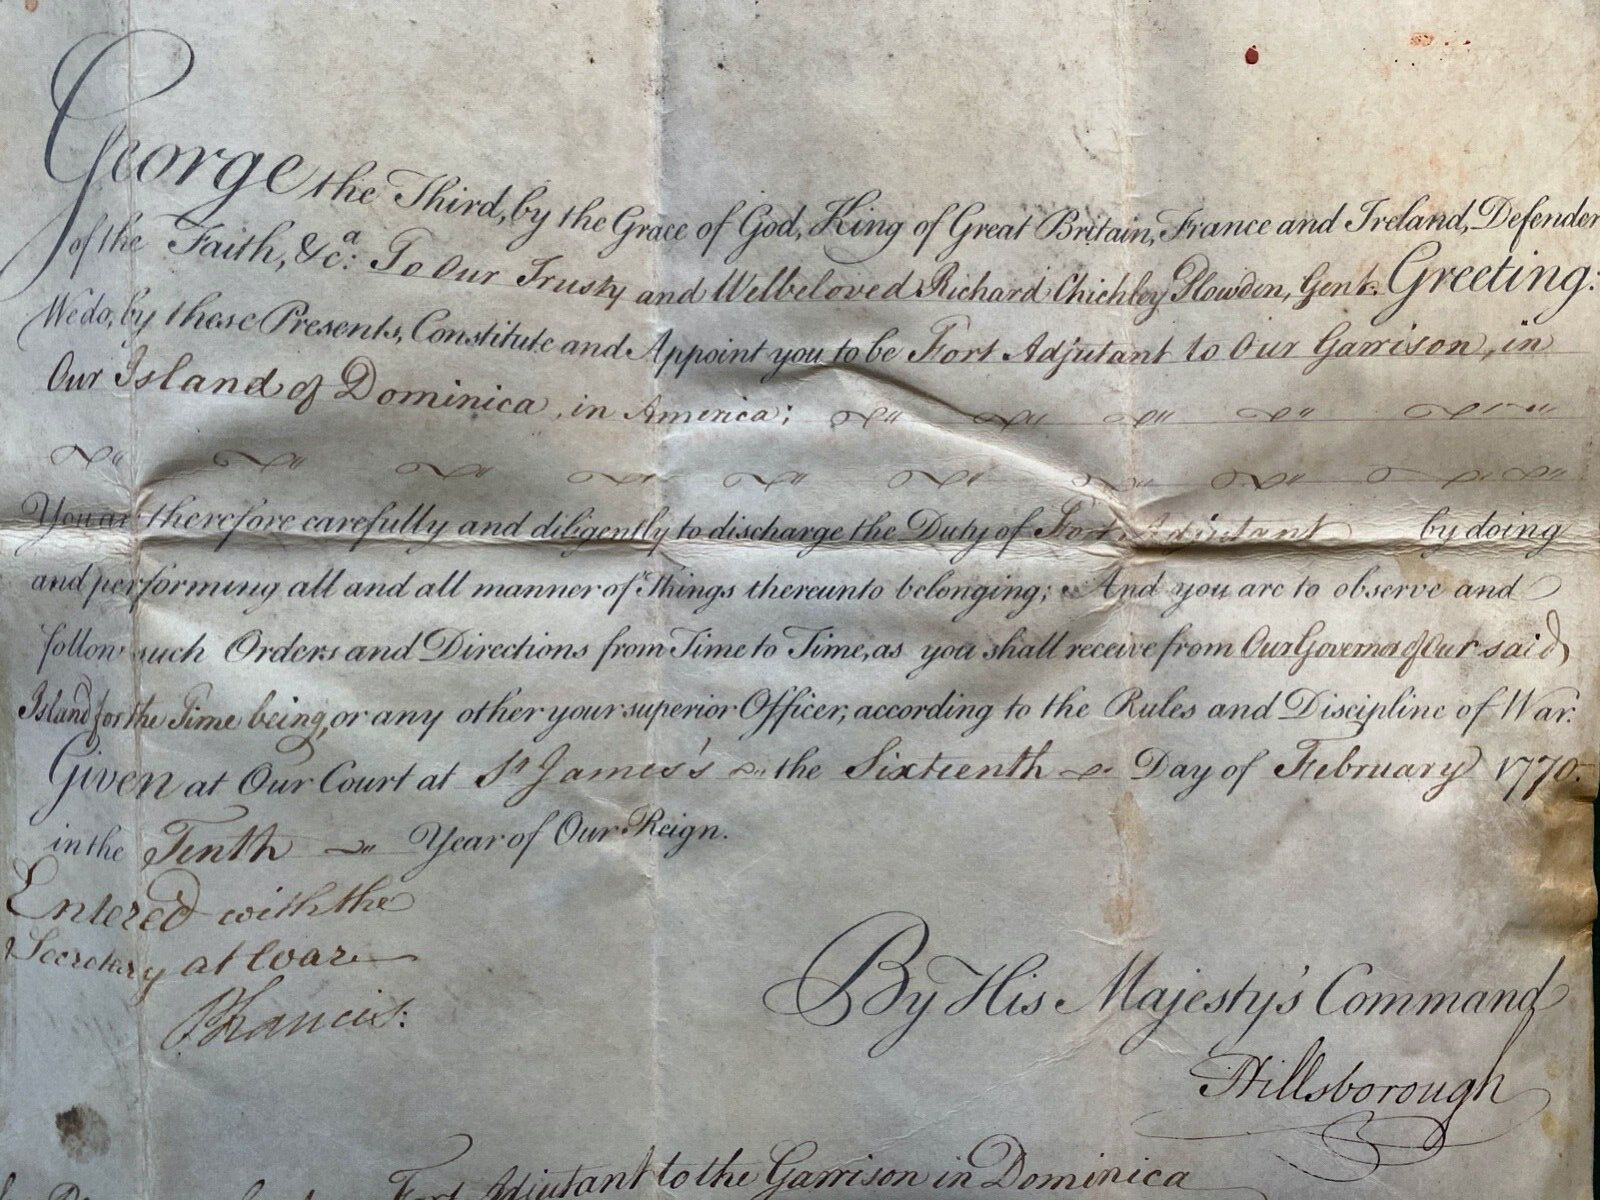 George the Third, by the Grace of God, King of Great Britain, France and Ireland, Defender
of the Faith, &c.a: To Our Trusty and Welbeloved Richard Chichley Plowden, Gent. Greeting:
We do, by these Presents, Constitute and Appoint you to be Fort Adjutant to Our Garrison, in
Our Island of Dominica, in America;
You are therefore carefully and diligently to discharge the Duty of Fort Adjutant by doing
and performing all and all manner of Things thereunto belonging; And you are to observe and
follow such Orders and Directions from Time to Time, as you shall receive from Our Governor of Our said
Island for the Time being, or any other your superior Officer, according to the Rules and Discipline of War.
Given at Our Court at St James's the Sixteenth Day of February 1770.
in the Tenth Year of Our Reign.
Entered with the
Secretary at War
P Francis:
By His Majesty's Command
Hillsborough
Fort Adjutant to the Garrison in Dominica